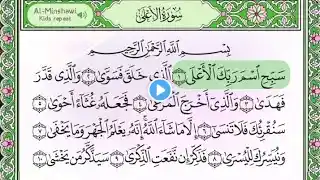 Al-Minshawi
Kids repeat
سُورَةُ الأَعْلَى
بِسْمِ اللَّهِ الرَّحْمَٰنِ الرَّحِيمِ
سَبِّحِ اسْمَ رَبِّكَ الْأَعْلَى ١ الَّذِي خَلَقَ فَسَوَّىٰ ٢ وَالَّذِي قَدَّرَ
فَهَدَىٰ ٣ وَالَّذِي أَخْرَجَ الْمَرْعَىٰ ٤ فَجَعَلَهُ غُثَاءً أَحْوَىٰ ٥
سَنُقْرِئُكَ فَلَا تَنسَىٰ ٦ إِلَّا مَا شَاءَ اللَّهُ إِنَّهُ يَعْلَمُ الْجَهْرَ وَمَا يَخْفَىٰ ٧
وَنُيَسِّرُكَ لِلْيُسْرَىٰ ٨ فَذَكِّرْ إِن نَّفَعَتِ الذِّكْرَىٰ ٩ سَيَذَّكَّرُ مَن يَخْشَىٰ ١٠